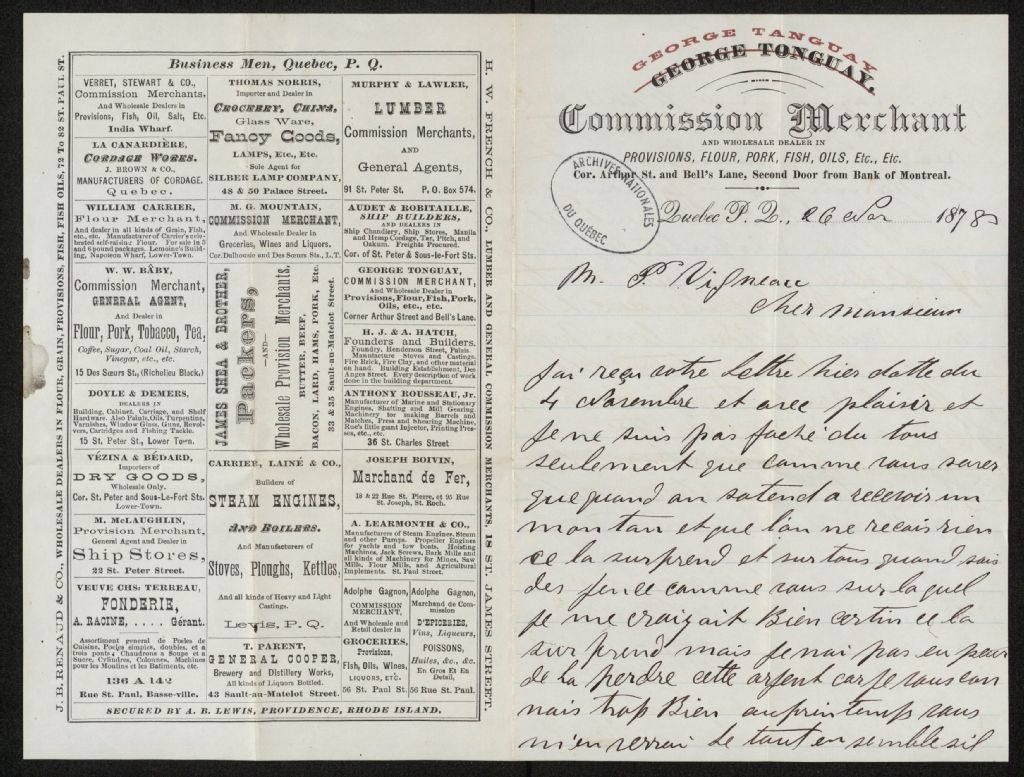 Business Men, Quebec, P. Q.
VERRET, STEWART & CO.,
Commission Merchants,
And Wholesale Dealers in
Provisions, Fish, Oil, Salt, Etc.
India Wharf.
LA CANARDIÈRE,
CORDAGE WORKS.
J. BROWN & CO.,
MANUFACTURERS OF CORDAGE.
Quebec.
WILLIAM CARRIER,
Flour Merchant,
And dealer in all kinds of Grain, Fish,
etc., etc. Manufacturer of Carrier's cele-
brated self-raising Flour. For sale in 3
and 6 pound packages. Lemoine's Build-
ing, Napoleon Wharf, Lower-Town.
W. W. BÂBY,
Commission Merchant,
GENERAL AGENT,
And Dealer in
Flour, Pork, Tobacco, Tea,
Coffee, Sugar, Coal Oil, Starch,
Vinegar, etc., etc.
15 Des Sœurs St., (Richelieu Block.)
DOYLE & DEMERS,
DEALERS IN
Building, Cabinet, Carriage, and Shelf
Hardware. Also Paints, Oils, Turpenting,
Varnishes, Window Glass, Guns, Revol-
vers, Cartridges and Fishing Tackle.
15 St. Peter St., Lower Town.
VÉZINA & BÉDARD,
Importers of
DRY GOODS,
Wholesale Only.
Cor. St. Peter and Sous-Le-Fort Sts.
Lower-Town.
M. McLAUGHLIN,
Provision Merchant,
General Agent and Dealer in
Ship Stores,
22 St. Peter Street.
VEUVE CHS: TERREAU,
FONDERIE,
A. RACINE, ..... Gérant.
Assortiment general de Poeles de
Cuisine, Poeles simples, doubles, et a
trois ponts; Chaudrons a Soupe et a
Sucre, Cylindres, Colonnes, Machines
pour les Moulins et les Batiments, etc.
136 A 142
Rue St. Paul, Basse-ville.
THOMAS NORRIS,
Importer and Dealer in
CROCKERY, CHINA,
Glass Ware,
Fancy Goods,
LAMPS, Etc., Etc.
Sole Agent for
SILBER LAMP COMPANY,
48 & 50 Palace Street.
M. G. MOUNTAIN,
COMMISSION MERCHANT,
And Wholesale Dealer in
Groceries, Wines and Liquors.
Cor. Dalhousie and Des Sœurs Sts., L.T.
JAMES SHEA & BROTHER,
Packers,
—AND—
Wholesale Provision Merchants,
BUTTER, BEEF,
BACON, LARD, HAMS, PORK, Etc.
33 & 35 Sault-au-Matelot Street.
CARRIER, LAINÉ & CO.,
Builders of
STEAM ENGINES,
AND BOILERS.
And Manufacturers of
Stoves, Ploughs, Kettles,
And all kinds of Heavy and Light
Castings.
Levis, P. Q.
T. PARENT,
GENERAL COOPER,
Brewery and Distillery Works,
All kinds of Liquors Bottled.
43 Sault-au-Matelot Street.
MURPHY & LAWLER,
LUMBER
Commission Merchants,
AND
General Agents,
91 St. Peter St. P. O. Box 574.
AUDET & ROBITAILLE,
SHIP BUILDERS,
AND DEALERS IN
Ship Chandlery, Ship Stores, Manila
and Hemp Cordage, Tar, Pitch, and
Oakum. Freights Procured.
Cor. of St. Peter & Sous-le-Fort Sts.
GEORGE TONGUAY,
COMMISSION MERCHANT,
And Wholesale Dealer in
Provisions, Flour, Fish, Pork,
Oils, etc., etc.
Corner Arthur Street and Bell's Lane.
H. J. & A. HATCH,
Founders and Builders,
Foundry, Henderson Street, Palais.
Manufacture Stoves and Castings.
Fire Brick, Fire Clay, and other material
on hand. Building Establishment, Des
Anges Street. Every description of work
done in the building department.
ANTHONY ROUSSEAU, Jr.
Manufacturer of Marine and Stationary
Engines, Shafting and Mill Gearing,
Machinery for making Barrels and
Matches, Press and Shearing Machine,
Rue's little giant Injector, Printing Pres-
ses, etc., etc.
36 St. Charles Street
JOSEPH BOIVIN,
Marchand de Fer,
18 & 22 Rue St. Pierre, et 95 Rue
St. Joseph, St. Roch.
A. LEARMONTH & CO.,
Manufacturers of Steam Engines, Steam
and other Pumps. Propeller Engines
for yachts and tow boats. Hoisting
Machines, Jack Screws, Bark Mills and
all kinds of Machinery for Mines, Saw
Mills, Flour Mills, and Agricultural
Implements. St. Paul Street.
Adolphe Gagnon,
COMMISSION
MERCHANT,
And Wholesale and
Retail dealer in
GROCERIES,
Provisions,
Fish, Oils, Wines,
LIQUORS, ETC.
56 St. Paul St.
Adolphe Gagnon,
Marchand de Com-
mission
D'EPICERIES,
Vins, Liqueurs,
POISSONS,
Huiles, &c., &c.
En Gros Et En
Detail,
56 Rue St. Paul.
SECURED BY A. B. LEWIS, PROVIDENCE, RHODE ISLAND.
J. B. RENAUD & CO., WHOLESALE DEALERS IN FLOUR, GRAIN, PROVISIONS, FISH, FISH OILS, 72 To 82 ST. PAUL ST.
H. W. FRENCH & CO., LUMBER AND GENERAL COMMISSION MERCHANTS, 18 ST. JAMES STREET.
GEORGE TANGUAY
GEORGE TONGUAY,
Commission Merchant
AND WHOLESALE DEALER IN
PROVISIONS, FLOUR, PORK, FISH, OILS, Etc., Etc.
Cor. Arthur St. and Bell's Lane, Second Door from Bank of Montreal.
ARCHIVES NATIONALES
DU QUÉBEC
Quebec P. Q., 26 Nov 1878
M. P. Vigneau
Cher monsieur
J'ai reçu votre Lettre hier datte du
4 Novembre et avec plaisir et
Je ne suis pas faché du tous
seulement que comme vous savez
que quand on satend a recevoir un
montan et que l'on ne recais rien
ce la surprend et surtous quand sais
des fence comme vous sur laquel
je me craiyait Bien certin ce la
surprend mais Je nai pas eu peur
de La perdre cette argent car je vous con
nais trop Bien au printemps vous
m'en verrai Le tout en semble sil